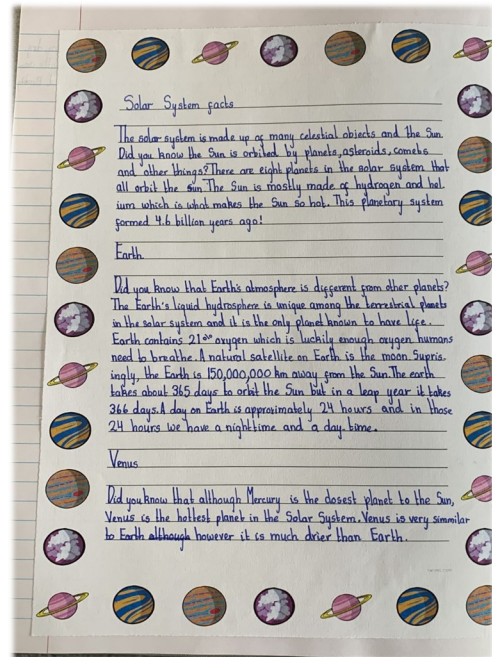 Solar System facts
The solar system is made up of many celestial objects and the Sun.
Did you know the Sun is orbited by planets, asteroids, comets
and other things? There are eight planets in the solar system that
all orbit the sun. The Sun is mostly made of hydrogen and hel.
ium which is what makes the Sun so hot. This planetary system
formed 4.6 billion years ago!
Earth
Did you know that Earth's atmosphere is different from other planets?
The Earth's liquid hydrosphere is unique among the terrestrial planets
in the solar system and it is the only planet known to have life.
Earth contains 21% oxygen which is luckily enough oxygen humans
need to breathe. A natural satellite on Earth is the moon. Supris.
ingly, the Earth is 150,000,000 km away from the Sun. The earth
takes about 365 days to orbit the Sun but in a leap year it takes
366 days. A day on Earth is approximately 24 hours and in those
24 hours we have a nighttime and a day time.
Venus
Did you know that although Mercury is the closest planet to the Sun,
Venus is the hottest planet in the Solar System. Venus is very simmilar
to Earth although however it is much drier than Earth.